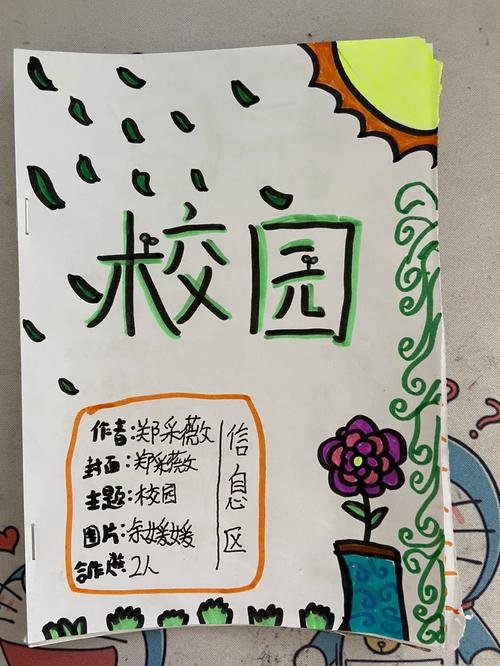 校园
作者:郑采薇
封面:郑采薇
主题:校园
图片:余媛媛
2人
信息区